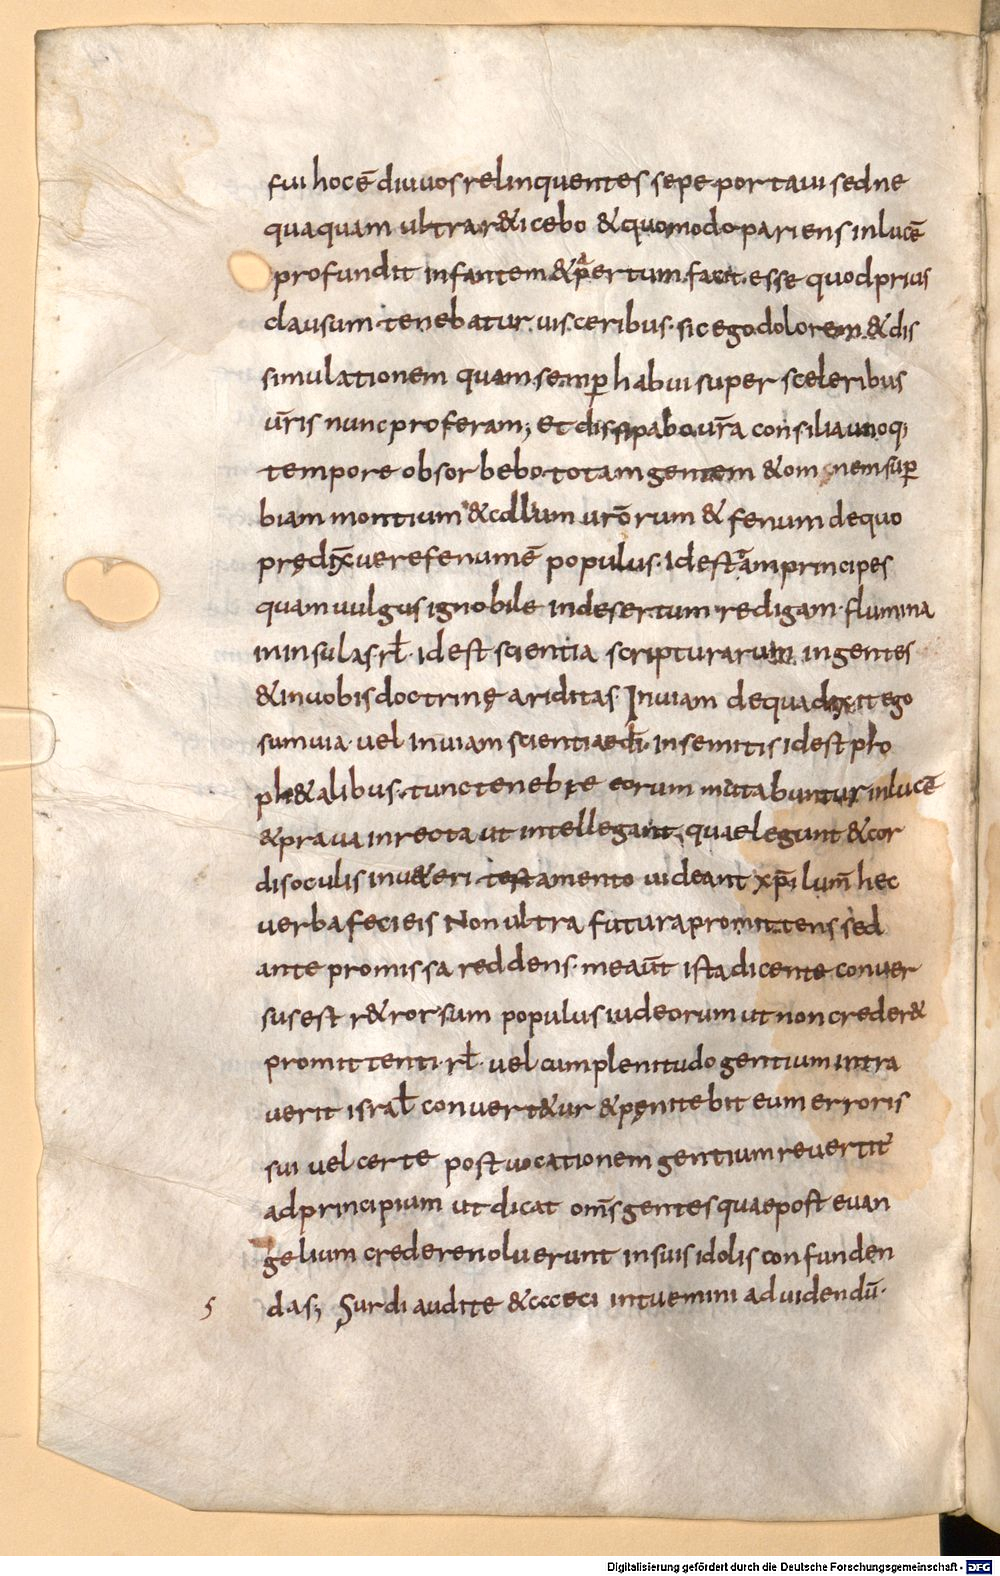 fui hoc ē diu uos relinquentes sepe portaui sed ne
quaquam ultra r&icebo & quomodo pariens in lucē
profundit infantem & apertum facit esse quod prius
clausum tenebatur uisceribus. sic ego dolorem & dis
simulationem quam semp̄ habui super sceleribus
ur̄is nunc proferam; Et dissipabo ur̄a consilia unoq;
tempore obsorbebo totam gentem & omnem sup̄
biam montium & collium uror̄um & fenum de quo
prędix̄ uere fenum ē populus. Id est tam principes
quam uulgus ignobile in desertum redigam. flumina
in insulas. rł. id est scientia scripturarum in gentes
& in uobis doctrinę ariditas. In uiam de qua dixit ego
sum uia. uel in uiam scientiae dī. in semitis id est pro
ph&alibus. tunc tenebre eorum mutabuntur in lucē
& praua in recta ut intellegant, quae legunt & cor
dis oculis in u&eri testamento uideant xp̄i lum̄ hec
uerba feci eis Non ultra futura promittens sed
ante promissa reddens. me aūt ista dicente conuer
sus est r&rorsum populus iudeorum ut non creder&
promittenti. rł. uel cum plenitudo gentium intra
uerit israł conuert&ur & pęnitebit eum erroris
sui uel certe post uocationem gentium reuertit̄
ad principium ut dicat om̄s gentes quae post euan
gelium credere noluerunt in suis idolis confunden
das; Surdi audite & cceci intuemini ad uidendū.
5
Digitalisierung gefördert durch die Deutsche Forschungsgemeinschaft - DFG